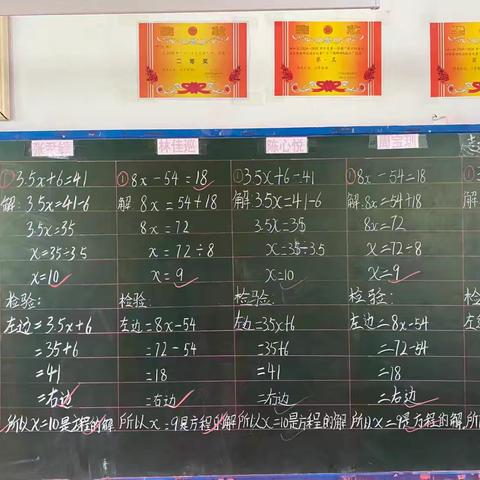 二等奖
林佳
陈心悦
① 3.5x+6=41
解: 3.5x=41-6
3.5x=35
x=35÷3.5
x=10
检验:
左边=3.5x+6
=35+6
=41
=右边
所以x=10是方程的解
① 8x-54=18
解: 8x=54+18
8x=72
x=72÷8
x=9
检验:
左边=8x-54
=72-54
=18
=右边
所以x=9是方程的解
① 3.5x+6=41
解: 3.5x=41-6
3.5x=35
x=35÷3.5
x=10
检验:
左边=3.5x+6
=35+6
=41
=右边
所以x=10是方程的解
① 8x-54=18
解: 8x=54+18
8x=72
x=72÷8
x=9
检验:
左边=8x-54
=72-54
=18
=右边
所以x=9是方程的解